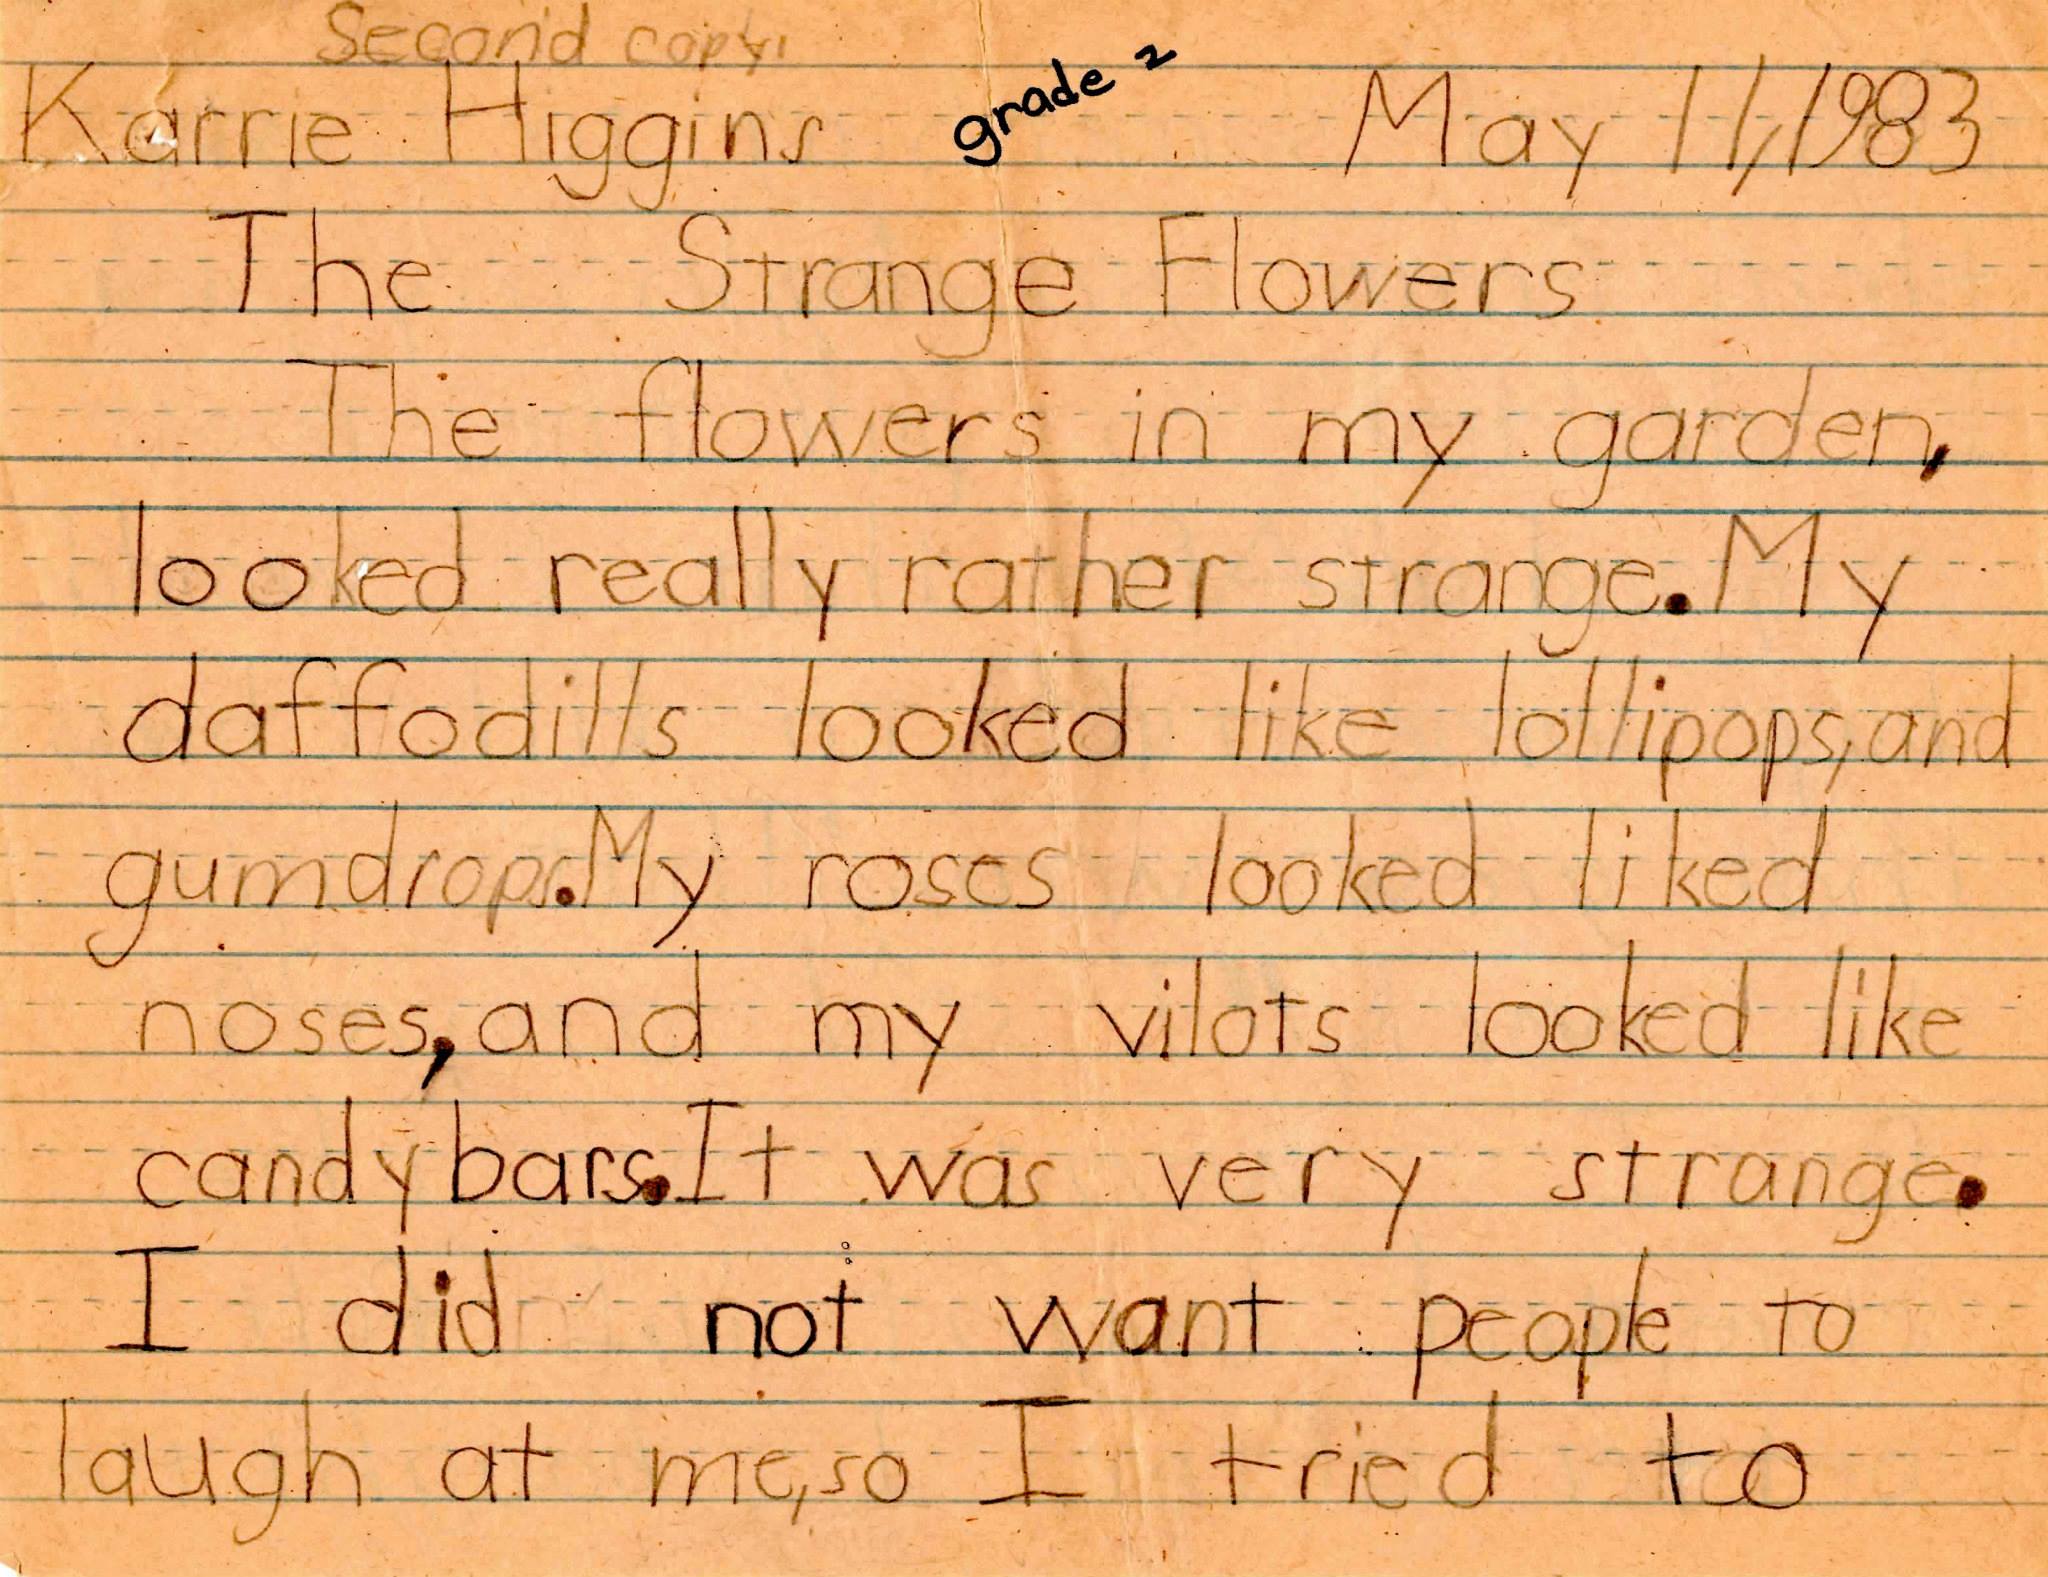 Second copy
Karrie Higgins grade 2 May 11, 1983
The Strange Flowers
The flowers in my garden,
looked really rather strange. My
daffodills looked like lollipops, and
gumdrops. My roses looked liked
noses, and my vilots looked like
candy bars. It was very strange.
I did not want people to
laugh at me, so I tried to